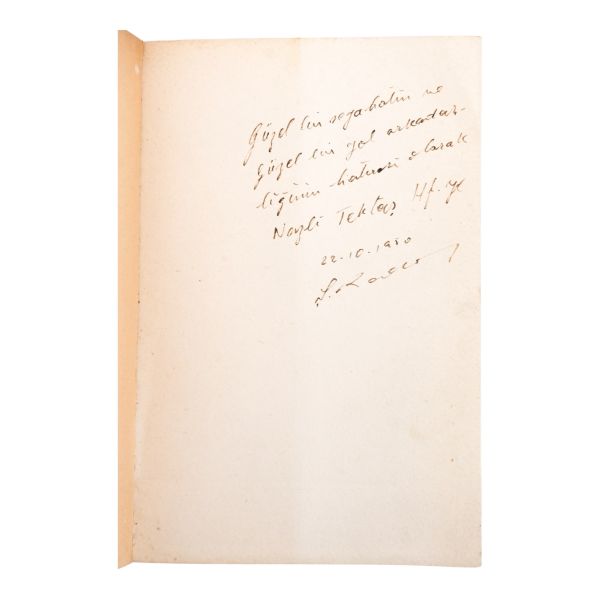 Güzel bir seyahatin ve
güzel bir yol arkadaş-
lığının hatırası olarak
Nazlı Tektaş Hf. ye
22.10.1950